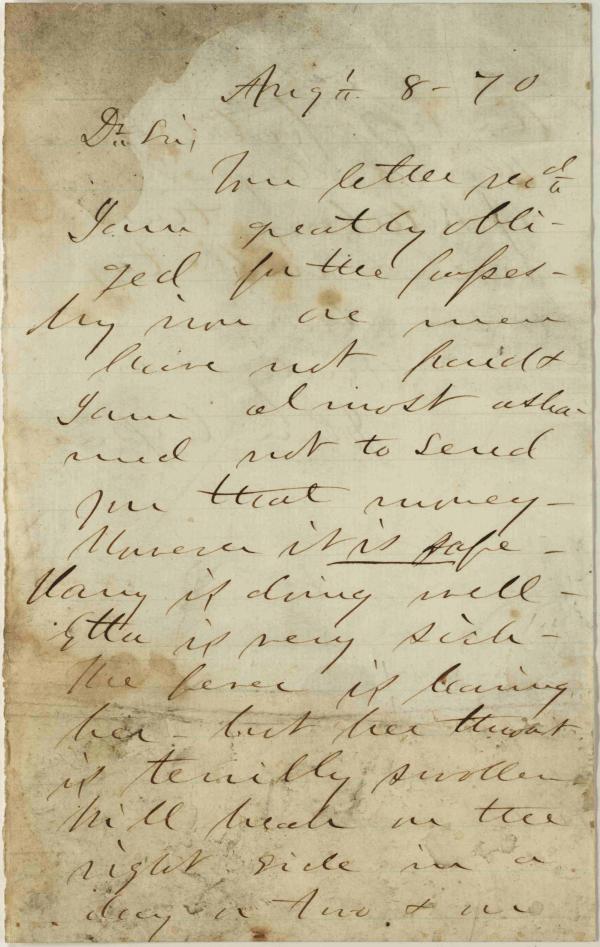 Augt 8-70
Dr Sir,
Your letter recd
I am greatly obli-
ged for the
men
have not paid &
I am almost asha-
med not to send
you that money -
However it is safe -
Harry is doing well -
Etta is very sick -
the fever is leaving
her - but her throat
is terribly swollen
Will break on the
right side in a
day or two & we